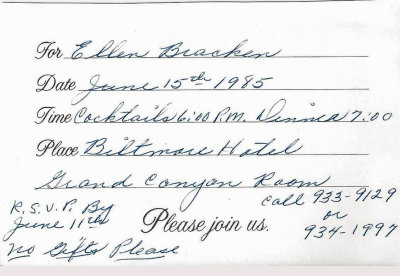 For Ellen Bracken
Date June 15th 1985
Time Cocktails 6:00 P.M. Dinner 7:00
Place Biltmore Hotel
Grand Canyon Room
R.S.V.P. By
June 11th
No Gifts Please
Please join us.
Call 933-9129
or
934-1997